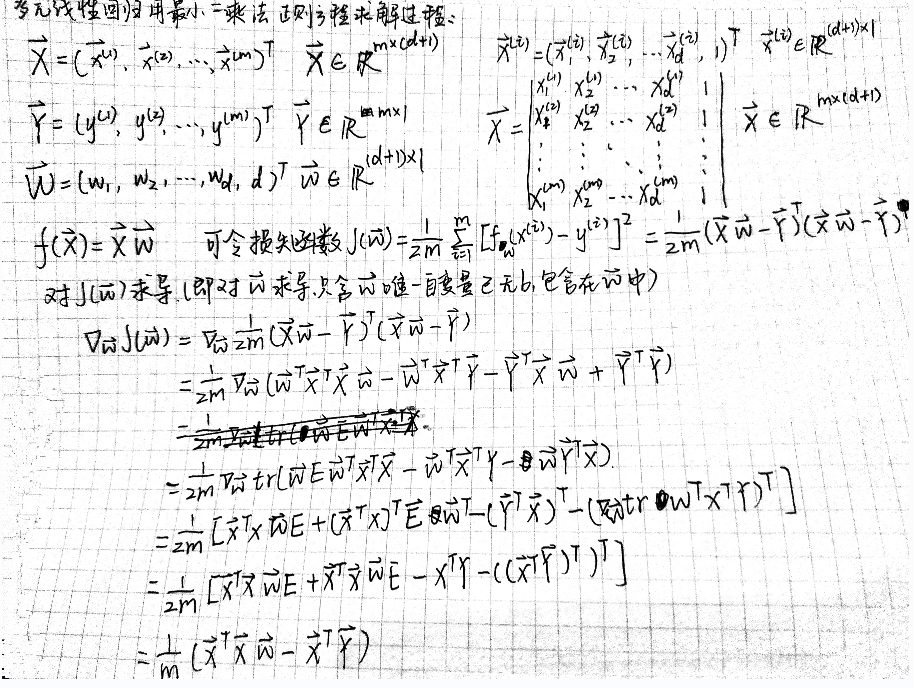 多元线性回归用最小二乘法 正则方程求解过程:
$\vec{X}=(\vec{x}^{(1)}, \vec{x}^{(2)}, \cdots, \vec{x}^{(m)})^T \quad \vec{X} \in \mathbb{R}^{m×(d+1)}$
$\vec{x}^{(i)}=(\vec{x}_1^{(i)}, \vec{x}_2^{(i)}, \cdots \vec{x}_d^{(i)}, 1)^T \quad \vec{x}^{(i)} \in \mathbb{R}^{(d+1)×1}$
$\vec{Y}=(y^{(1)}, y^{(2)}, \cdots, y^{(m)})^T \quad \vec{Y} \in \mathbb{R}^{m×1}$
$\vec{X}=\begin{vmatrix} x_1^{(1)} & x_2^{(1)} & \cdots & x_d^{(1)} & 1 \\ x_1^{(2)} & x_2^{(2)} & \cdots & x_d^{(2)} & 1 \\ \vdots & \vdots & \vdots & \vdots & \vdots \\ x_1^{(m)} & x_2^{(m)} & \cdots & x_d^{(m)} & 1 \end{vmatrix} \quad \vec{X} \in \mathbb{R}^{m×(d+1)}$
$\vec{W}=(w_1, w_2, \cdots, w_d, d)^T \quad \vec{w} \in \mathbb{R}^{(d+1)×1}$
$f(\vec{X})=\vec{X}\vec{w}$ 可令损失函数 $J(\vec{w})=\frac{1}{2m}\sum_{i=1}^{m}[f_w(x^{(i)})-y^{(i)}]^2=\frac{1}{2m}(\vec{X}\vec{w}-\vec{Y})^T(\vec{X}\vec{w}-\vec{Y})$
对J($\vec{w}$)求导(即对$\vec{w}$求导,只含$\vec{w}$唯一自变量已无b,包含在$\vec{w}$中)
$\nabla_{\vec{w}}J(\vec{w})=\nabla_{\vec{w}}\frac{1}{2m}(\vec{X}\vec{w}-\vec{Y})^T(\vec{X}\vec{w}-\vec{Y})$
$=\frac{1}{2m}\nabla_{\vec{w}}(\vec{w}^T\vec{X}^T\vec{X}\vec{w}-\vec{w}^T\vec{X}^T\vec{Y}-\vec{Y}^T\vec{X}\vec{w}+\vec{Y}^T\vec{Y})$
$=\frac{1}{2m}\nabla_{\vec{w}}tr(\vec{w}E\vec{w}^T\vec{X}^T\vec{X}-\vec{w}^T\vec{X}^TY-\vec{w}\vec{Y}^T\vec{X})$
$=\frac{1}{2m}[\vec{X}^TX\vec{w}E+(\vec{X}^TX)^T\vec{E}\vec{w}^T-(\vec{Y}^T\vec{X})^T-(\nabla_{\vec{w}}tr w^TX^TY)^T]$
$=\frac{1}{2m}[\vec{X}^T\vec{X}\vec{w}E+\vec{X}^T\vec{X}\vec{w}E-X^TY-((\vec{X}^T\vec{Y})^T)^T]$
$=\frac{1}{m}(\vec{X}^T\vec{X}\vec{w}-\vec{X}^T\vec{Y})$